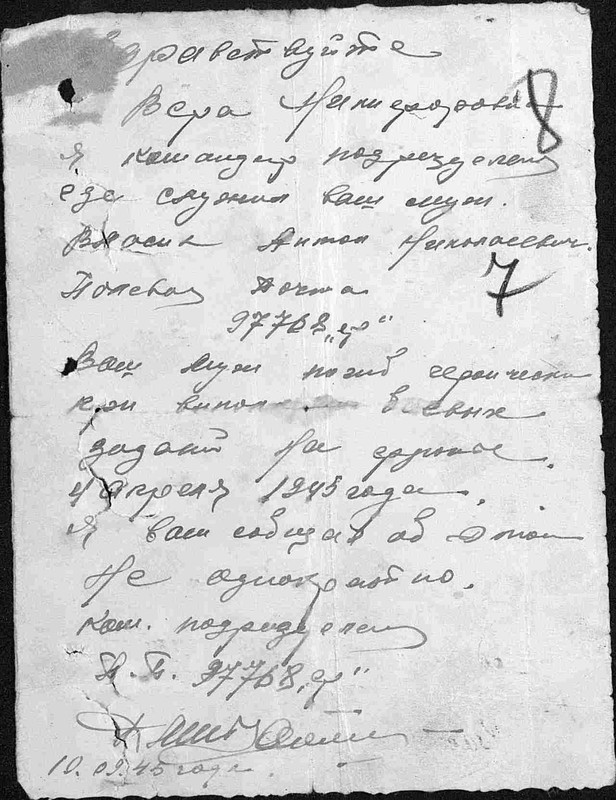 Здравствуйте
Вера
8
Я командир подразделения
где служил ваш муж.
Власик Антон Николаевич.
Полевая почта
7
97768 „ф"
Ваш муж погиб героически
при выполнении боевых
заданий На фронте.
4 апреля 1945 года.
Я вам собщал об этом
Не однократно.
Ком. подразделения
П.П. 97768 „ф"
10.09.45 года.